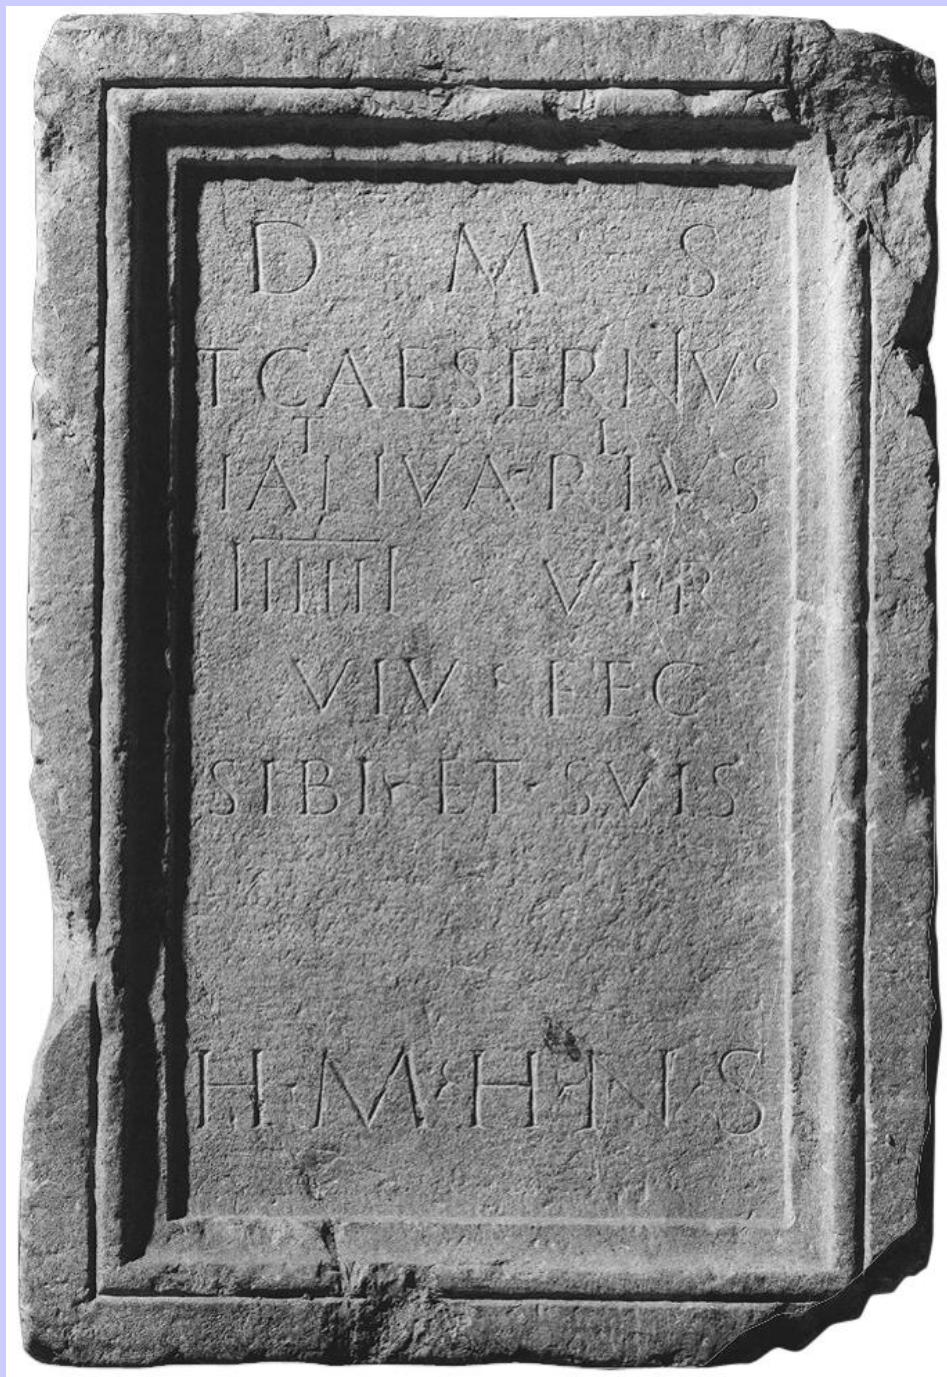 D M S
T·CAESERNIVS
T · L ·
IANVA·RIVS
IIIIII · VIR
VIV · FEC
SIBI·ET·SVIS
H·M·H·N·S